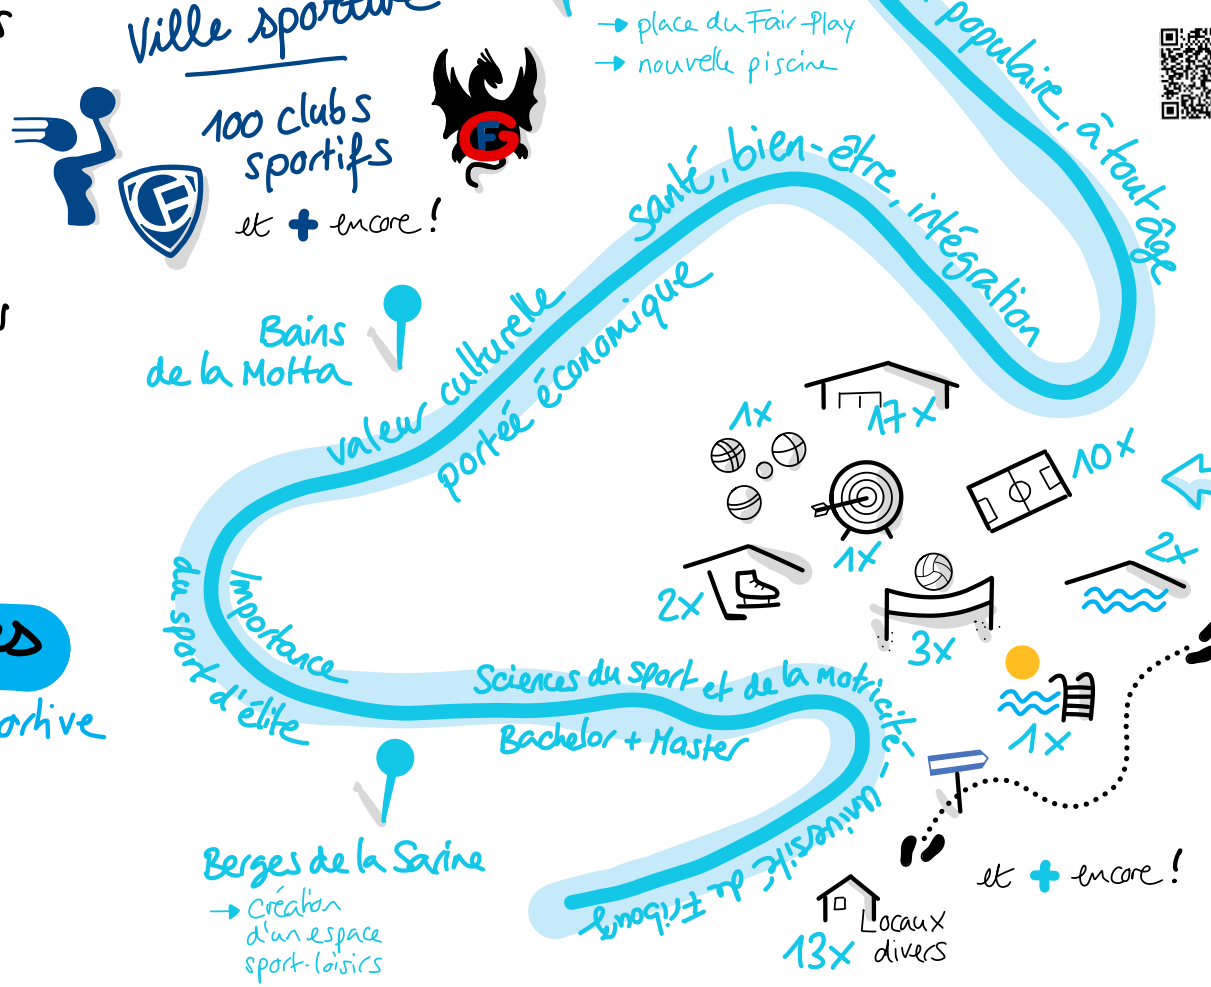 Ville sportive
100 clubs
sportifs
et + encore !
→ place du Fair-Play
→ nouvelle piscine
populaire, à tout âge
santé, bien-être, intégration
valeur culturelle
portée économique
Bains
de la Motta
1x
17x
10x
1x
2x
2x
3x
1x
Importance
du sport d'élite
Sciences du sport et de la motricité -
Université de Fribourg
Bachelor + Master
Berges de la Sarine
→ Création
d'un espace
sport-loisirs
et + encore !
13x
Locaux
divers